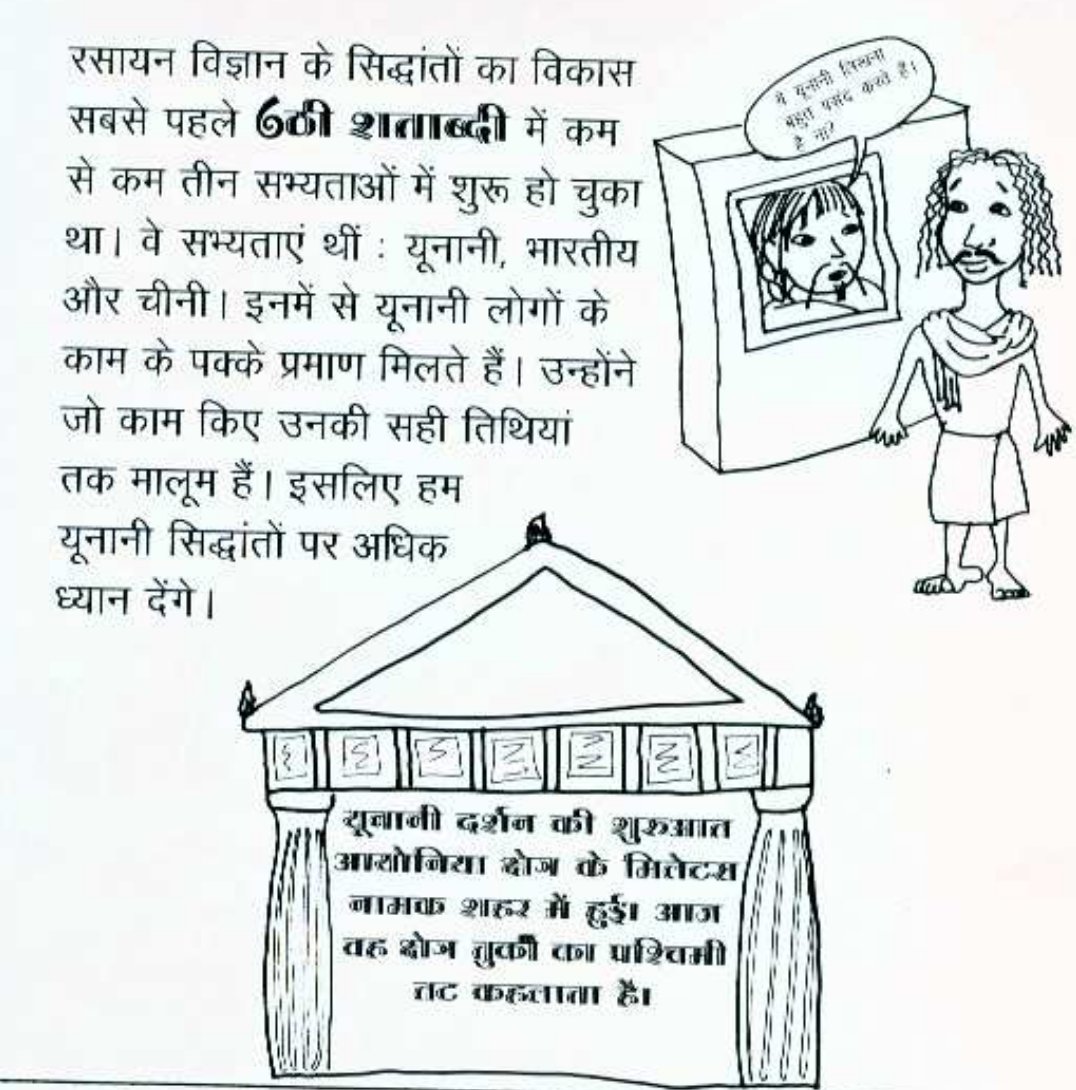 रसायन विज्ञान के सिद्धांतों का विकास
सबसे पहले 6ठी शताब्दी में कम
से कम तीन सभ्यताओं में शुरू हो चुका
था। वे सभ्यताएं थीं : यूनानी, भारतीय
और चीनी। इनमें से यूनानी लोगों के
काम के पक्के प्रमाण मिलते हैं। उन्होंने
जो काम किए उनकी सही तिथियां
तक मालूम हैं। इसलिए हम
यूनानी सिद्धांतों पर अधिक
ध्यान देंगे।
ये यूनानी लिखना
बहुत पसंद करते हैं।
है ना?
यूनानी दर्शन की शुरुआत
आयोनिया क्षेत्र के मिलेटस
नामक शहर में हुई। आज
वह क्षेत्र तुर्की का पश्चिमी
तट कहलाता है।